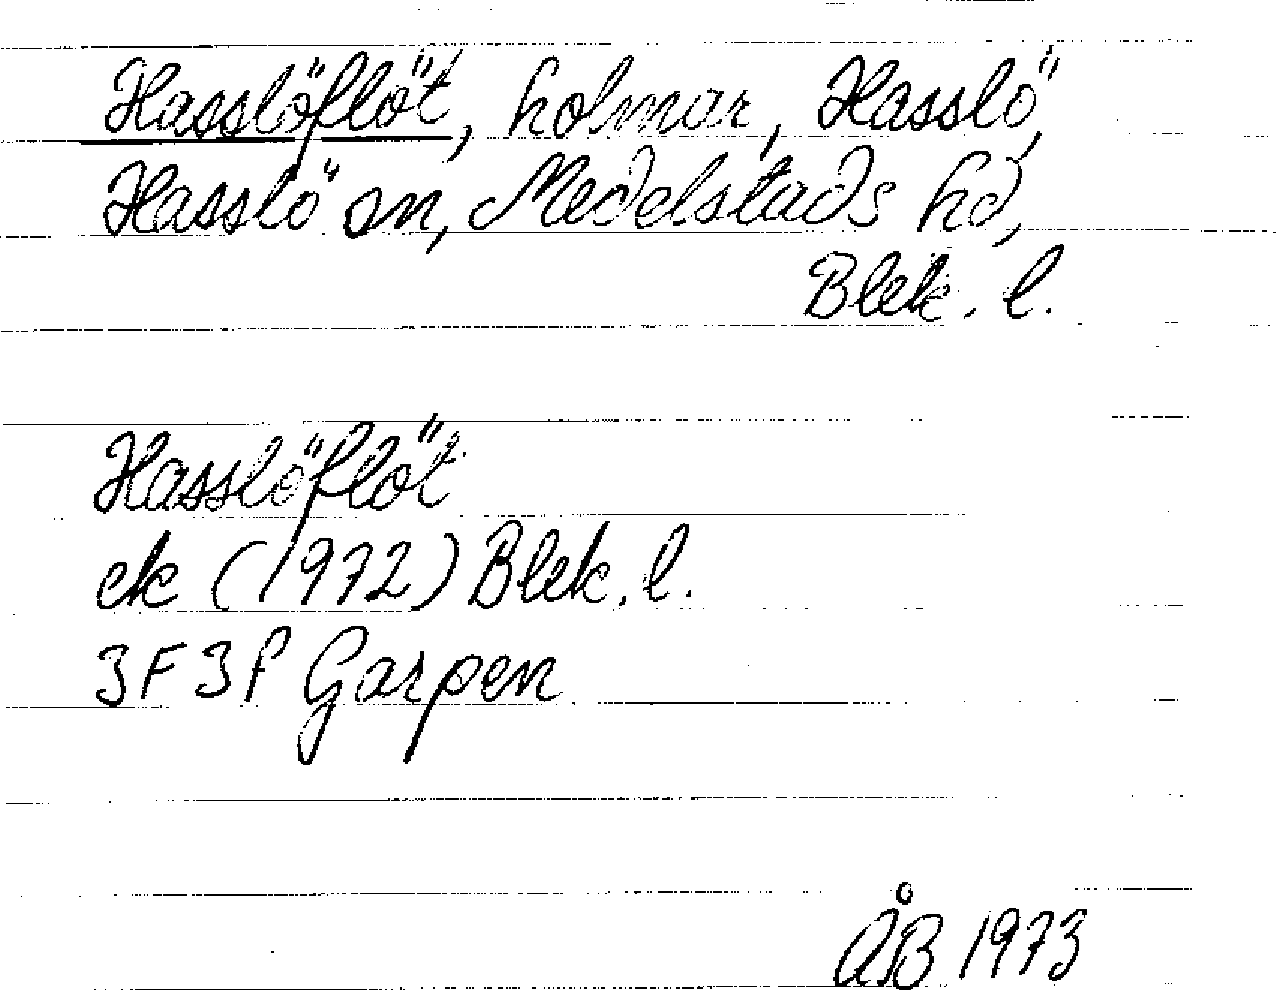 Hasslöflöt, holmar, Hasslö,
Hasslö sn, Medelstads hd,
Blek. l.
Hasslöflöt
ek (1972) Blek. l.
3F3f Garpen
ÅB 1973